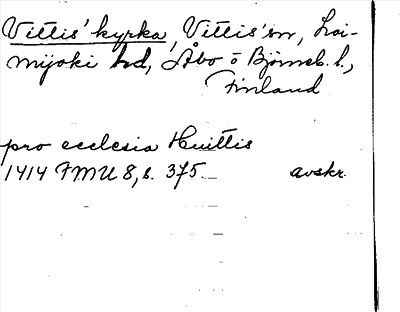 Vittis' kyrka, Vittis' sn, Loi-
mijoki hd, Åbo o Björneb. l.,
Finland
pro ecclesia Huittis
1414 FMU 8, s. 375 avskr.